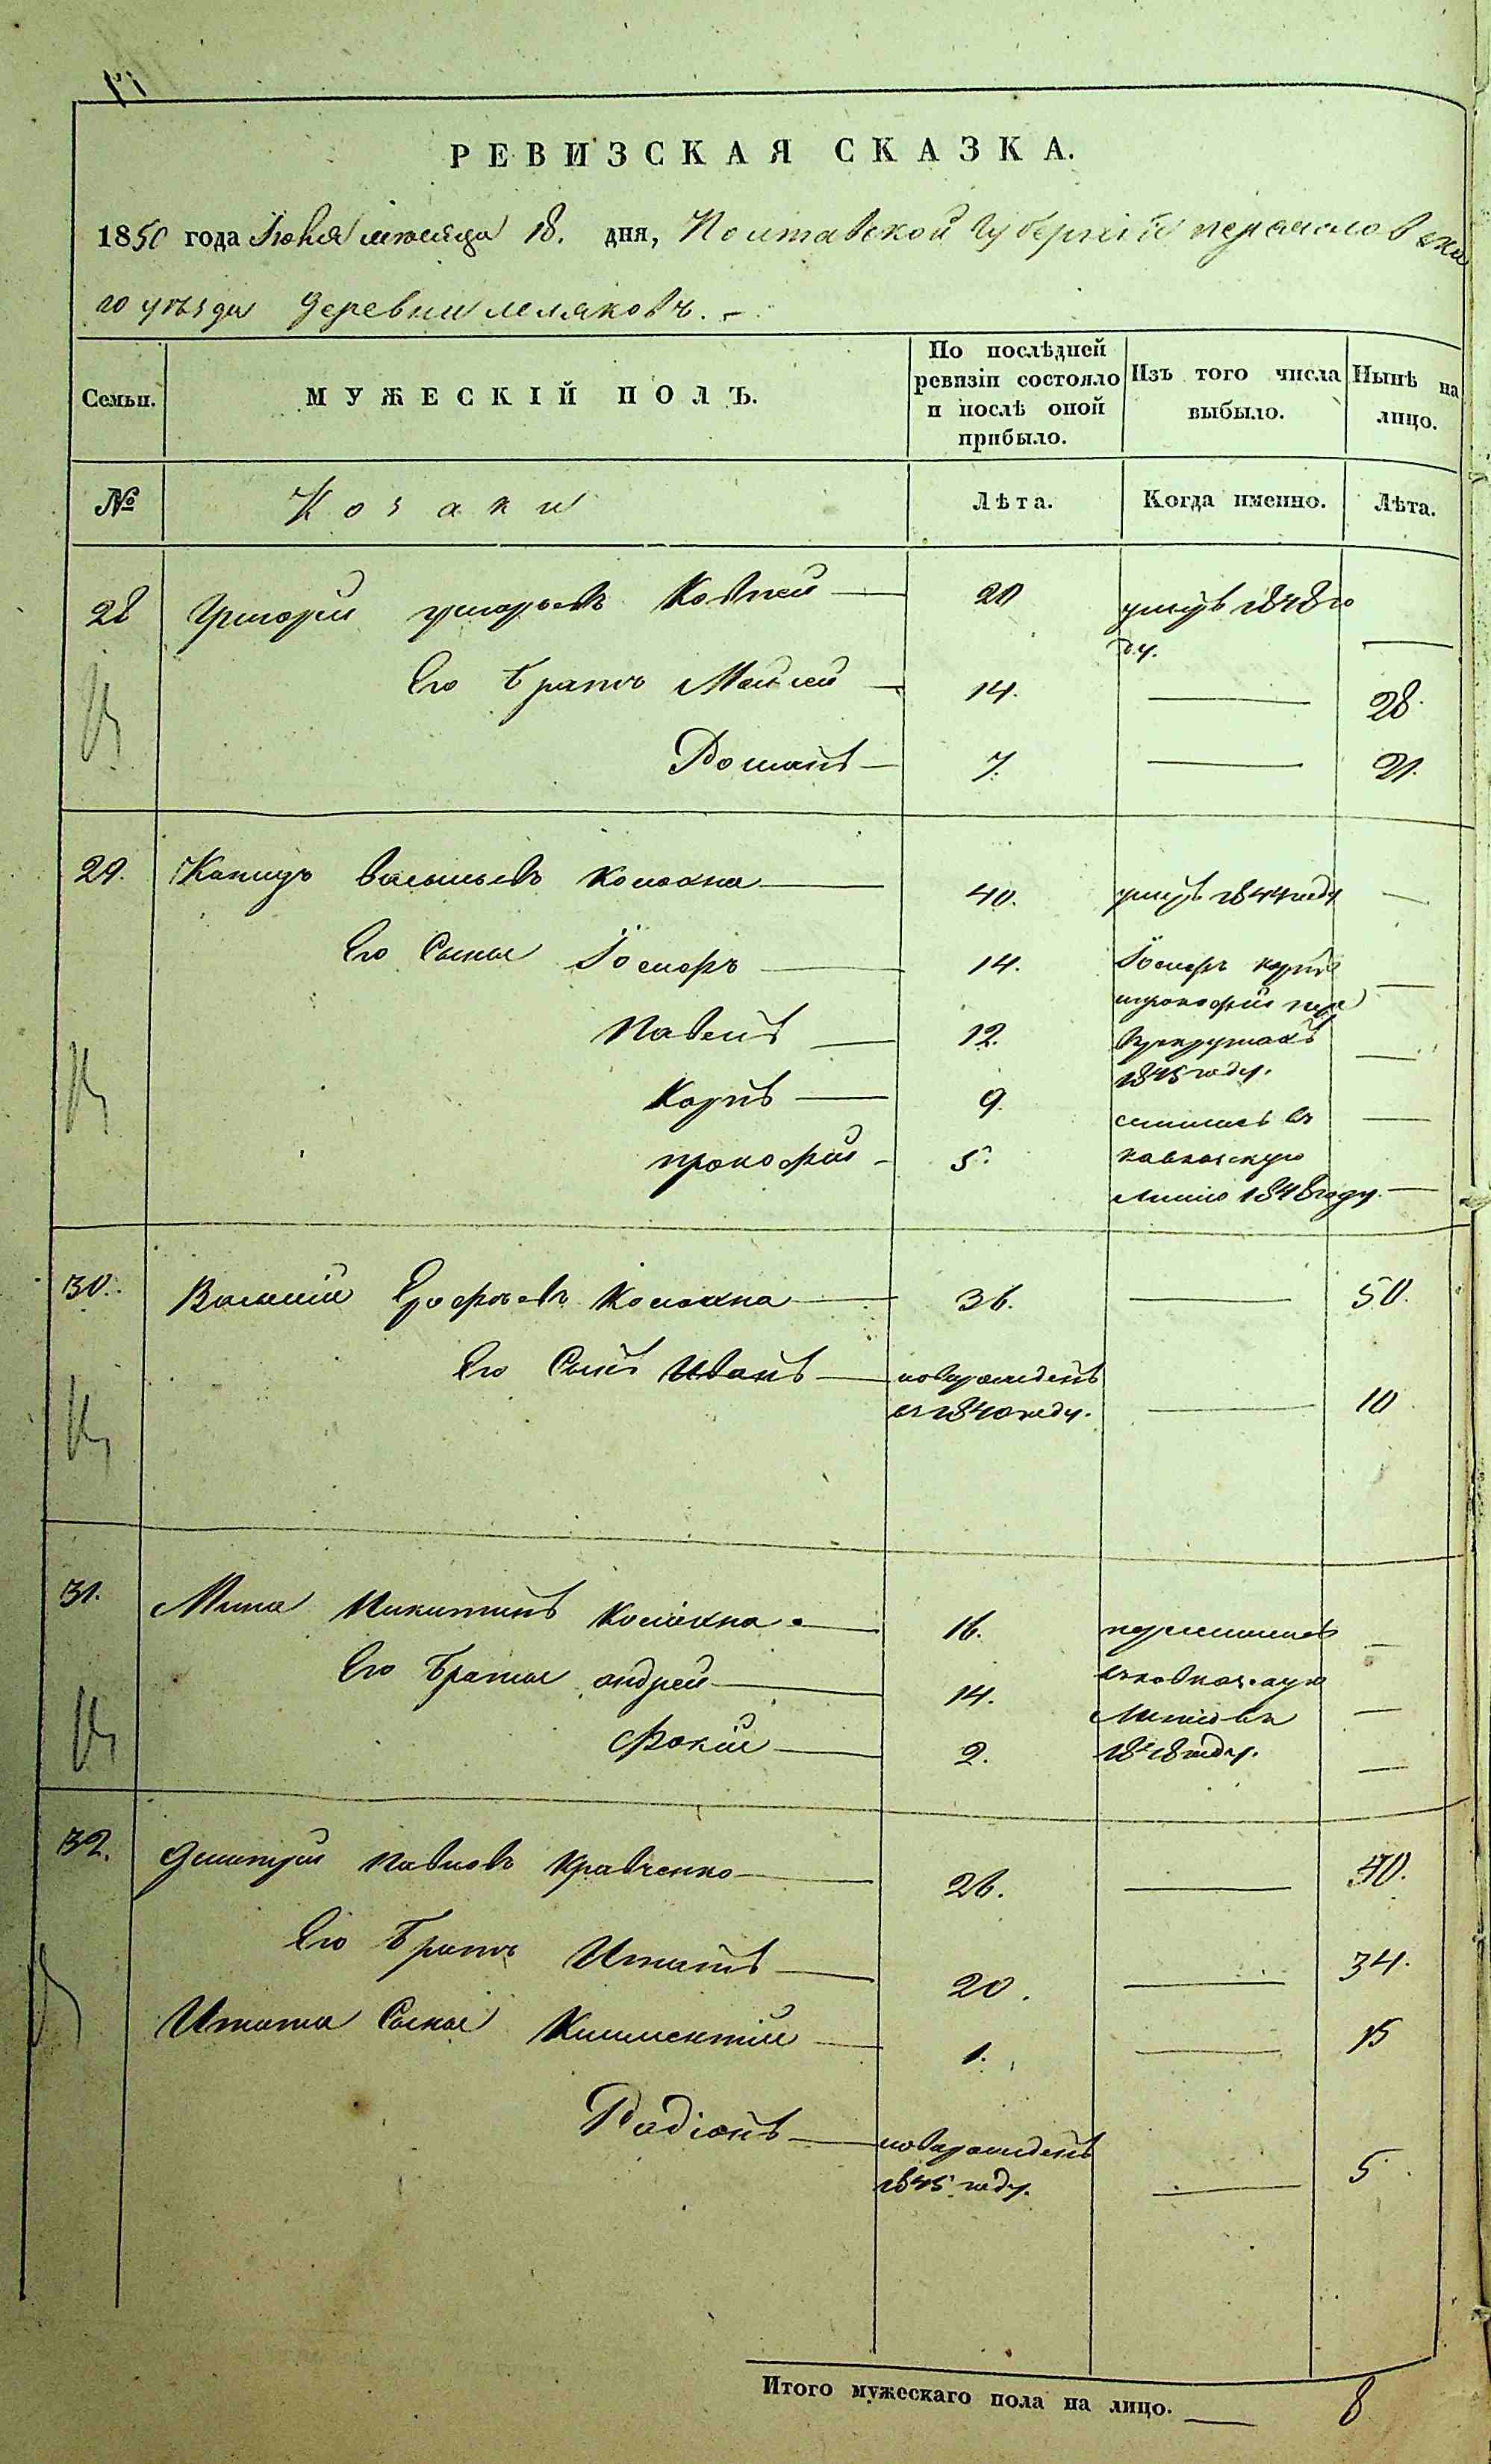 РЕВИЗСКАЯ СКАЗКА.
1850 года Іюня месяца 18. дня, Полтавской Губерніи переяслов ска
го уезда деревни леляковъ. –
Семьи.
МУЖЕСКІЙ ПОЛЪ.
По послѣдней ревизіи состояло и послѣ оной прибыло.
Изъ того числа выбыло.
Нынѣ на лицо.
№
Козаки
Лѣта.
Когда именно.
Лѣта.
28 Григорий григорьевъ 20 умеръ 1848 го
ду.
Его братъ 14. 28.
Романъ 7. 21.
29. Васильевъ 40. умеръ 1844 году
Его Сыны Іосифъ 14. Іосифъ карпъ
Павелъ 12. прокофий
1845 году.
Карпъ 9. въ
прокофий 5. кавказкую
Линию 1848 году.
30. Василий Ерофеевъ 36. 50.
Его Сынъ Иванъ новорожденъ
въ 1840 году. 10
31. Мина Никитинъ 16.
Его братья андрей 14. кавказкую
Фокій 2. Линию въ
1848 году.
32. Дмитрий Павловъ Кравченко 26. 40.
Его братъ Игнатъ 20. 34.
Игната Сыны Климентій 1. 15
Радіонъ новорожденъ
1845 году. 5
Итого мужескаго пола на лицо. 8